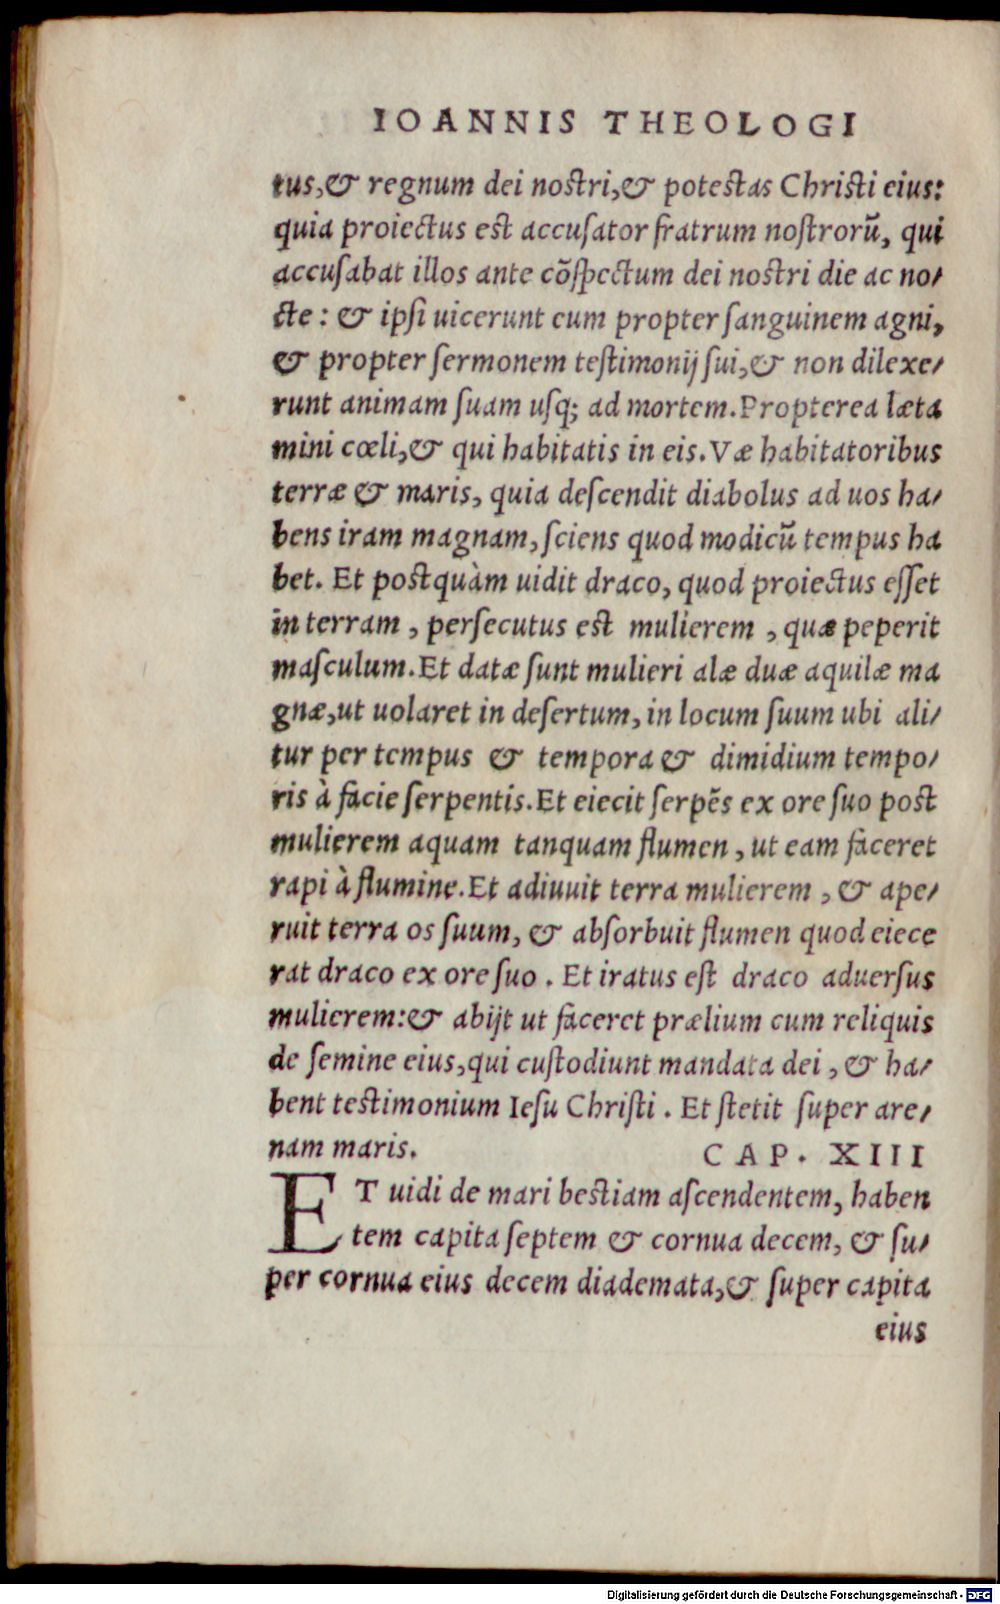 IOANNIS THEOLOGI
tus,& regnum dei noſtri,& poteſtas Chriſti eius:
quia proiectus eſt accuſator fratrum noſtrorū, qui
accuſabat illos ante cōſpectum dei noſtri die ac no/
cte: & ipſi uicerunt eum propter ſanguinem agni,
& propter ſermonem teſtimonij ſui,& non dilexe/
runt animam ſuam uſq; ad mortem.Propterea læta
mini cœli,& qui habitatis in eis.Væ habitatoribus
terræ & maris, quia deſcendit diabolus ad uos ha/
bens iram magnam, ſciens quod modicū tempus ha
bet. Et poſtquàm uidit draco, quod proiectus eſſet
in terram , perſecutus eſt mulierem , quæ peperit
maſculum.Et datæ ſunt mulieri alæ duæ aquilæ ma
gnæ,ut uolaret in deſertum, in locum ſuum ubi ali/
tur per tempus & tempora & dimidium tempo/
ris à facie ſerpentis.Et eiecit ſerpēs ex ore ſuo poſt
mulierem aquam tanquam flumen , ut eam faceret
rapi à flumine.Et adiuuit terra mulierem , & ape/
ruit terra os ſuum, & abſorbuit flumen quod eiece
rat draco ex ore ſuo . Et iratus eſt draco aduerſus
mulierem:& abijt ut faceret prælium cum reliquis
de ſemine eius,qui cuſtodiunt mandata dei , & ha/
bent teſtimonium Ieſu Chriſti . Et ſtetit ſuper are/
nam maris. CAP. XIII
ET uidi de mari beſtiam aſcendentem, haben
tem capita ſeptem & cornua decem, & ſu/
per cornua eius decem diademata,& ſuper capita
eius
Digitalisierung gefördert durch die Deutsche Forschungsgemeinschaft - DFG